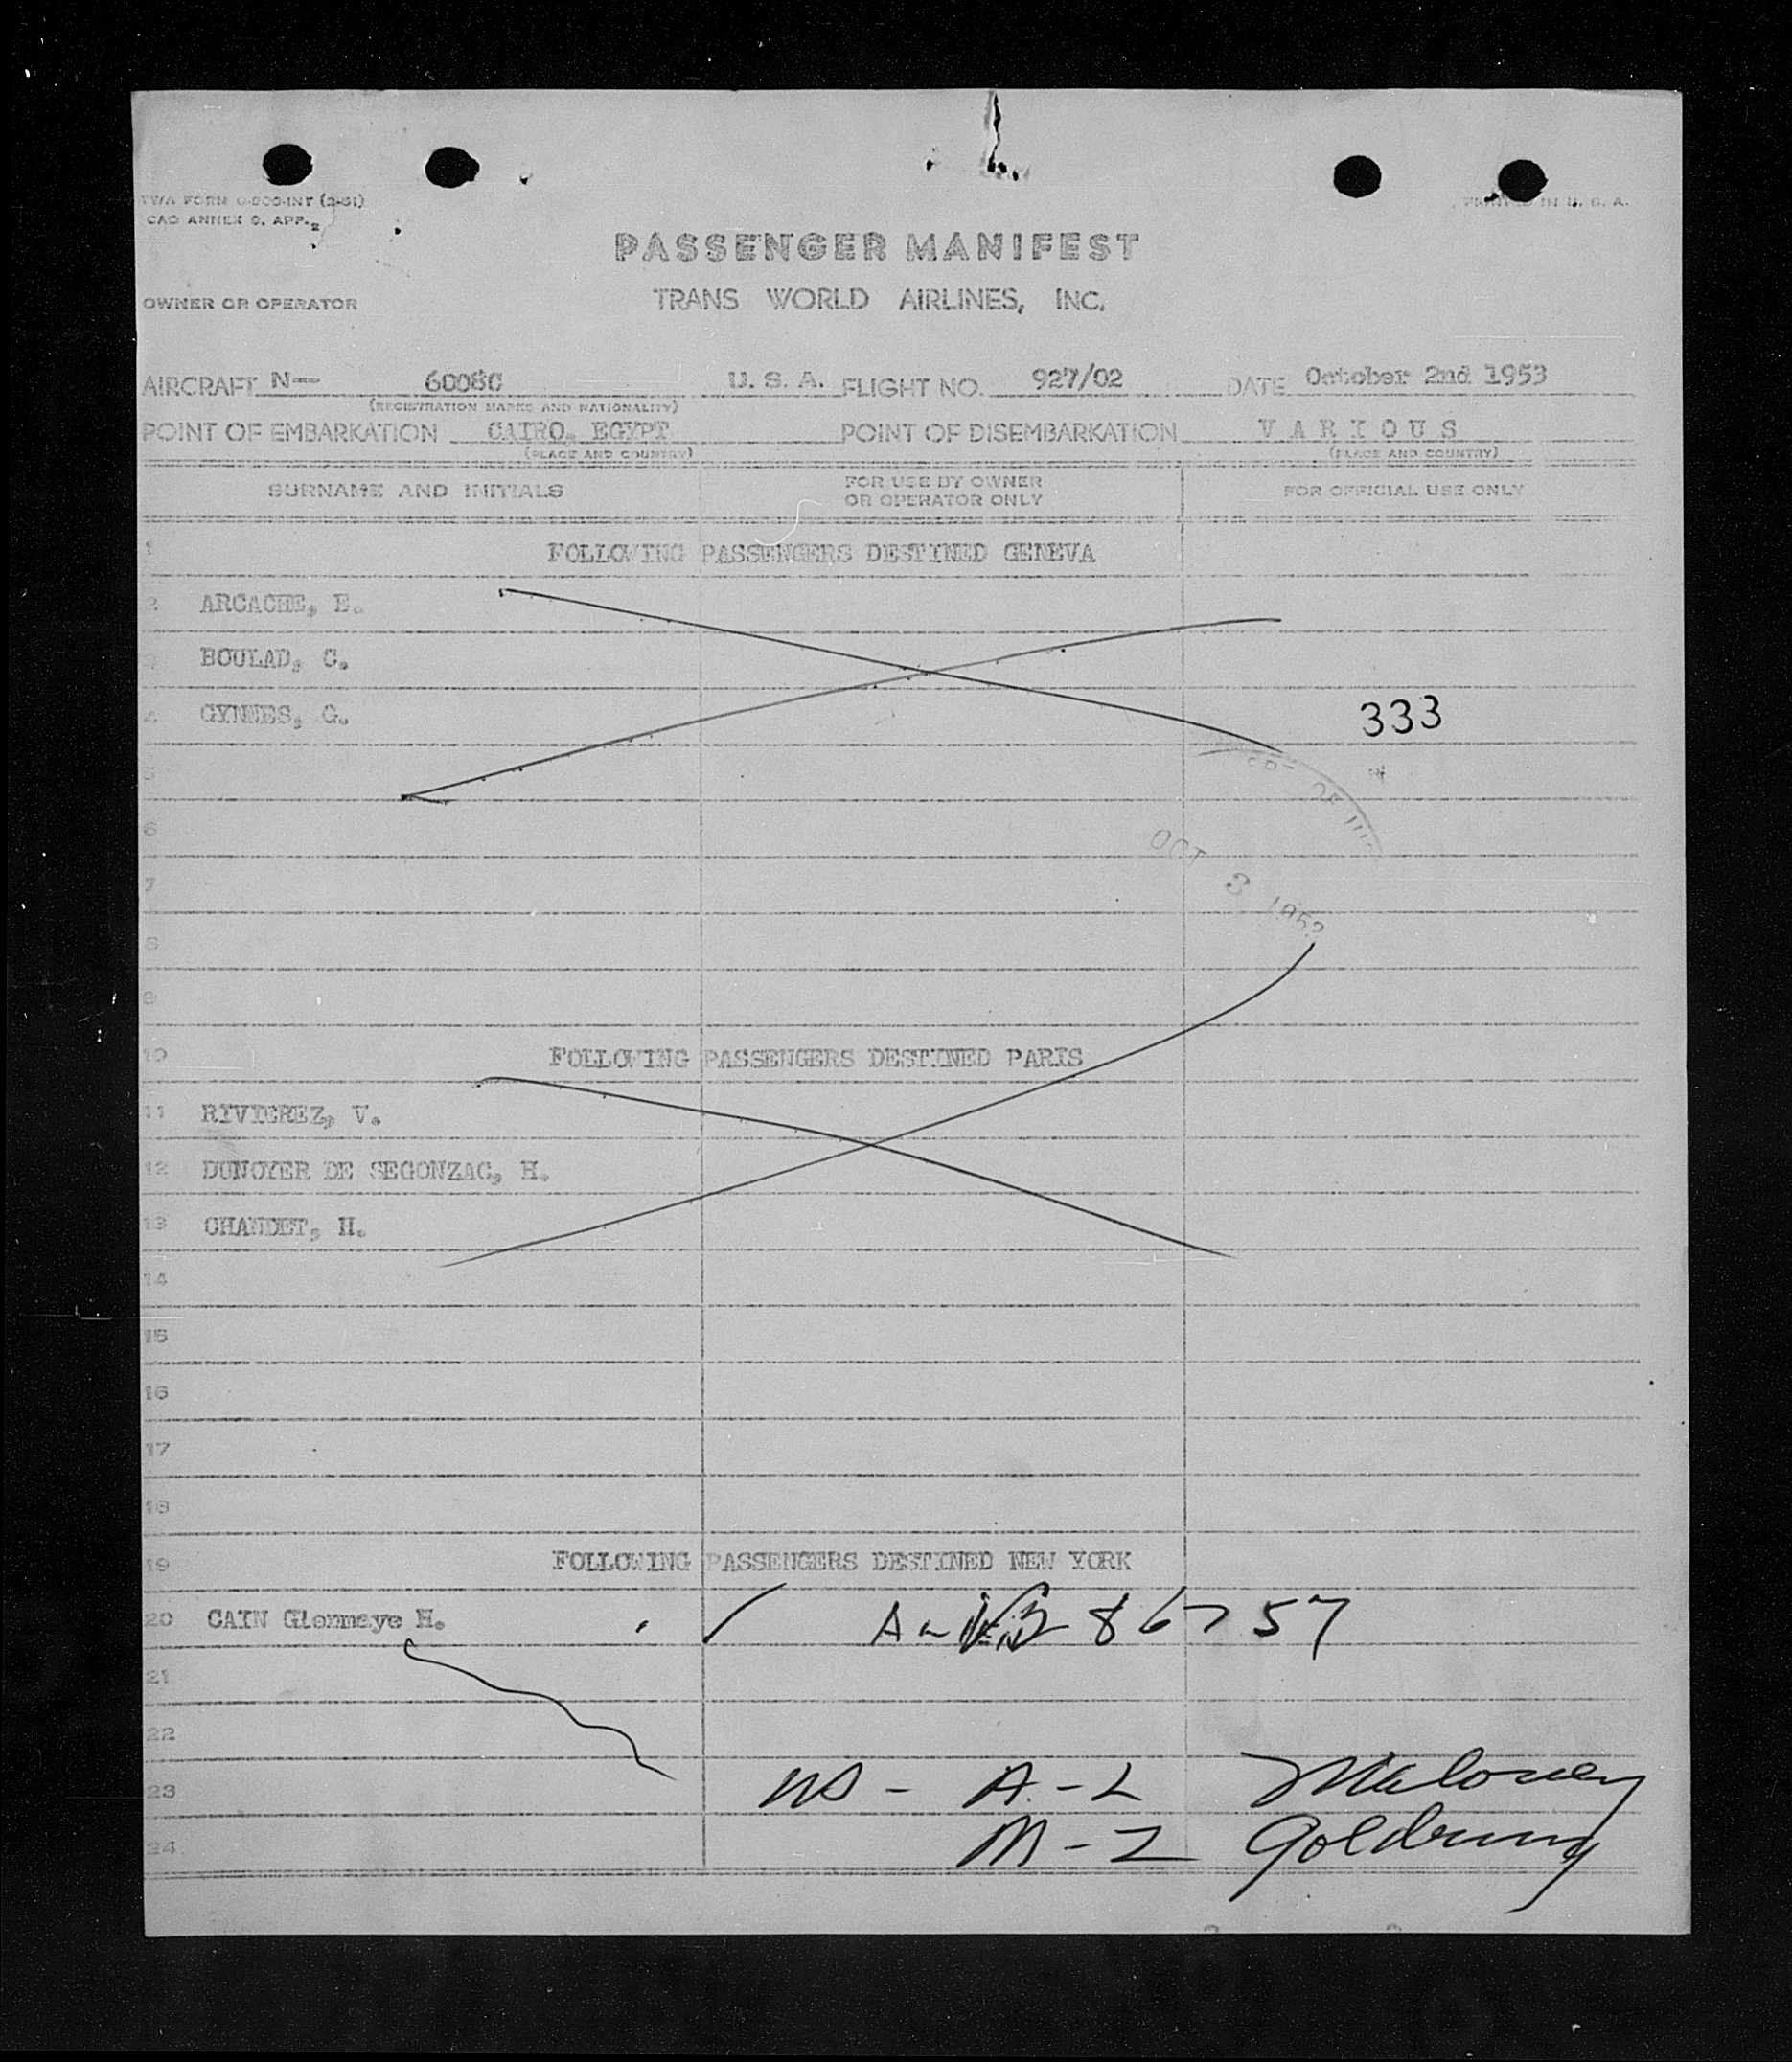 TWA FORM O-800-INT (3-51)
CAO ANNEX 9, APP. 2
PRINTED IN U. S. A.
PASSENGER MANIFEST
OWNER OR OPERATOR TRANS WORLD AIRLINES, INC.
AIRCRAFT N— 6008C U. S. A. FLIGHT NO. 927/02 DATE October 2nd 1953
(REGISTRATION MARKS AND NATIONALITY)
POINT OF EMBARKATION CAIRO, EGYPT POINT OF DISEMBARKATION VARIOUS
(PLACE AND COUNTRY) (PLACE AND COUNTRY)
SURNAME AND INITIALS FOR USE BY OWNER OR OPERATOR ONLY FOR OFFICIAL USE ONLY
1 FOLLOWING PASSENGERS DESTINED GENEVA
2 ARCACHE, E.
3 BOULAD, C.
4 GYNNES, G. 333
5
6
OCT 3 1953
7
8
9
10 FOLLOWING PASSENGERS DESTINED PARIS
11 RIVIEREZ, V.
12 DUNOYER DE SEGONZAC, H.
13 CHANDET, H.
14
15
16
17
18
19 FOLLOWING PASSENGERS DESTINED NEW YORK
20 CAIN Glenmaye H. A- 86757
21
22
23 A-L Maloney
24 M-Z Goldrung